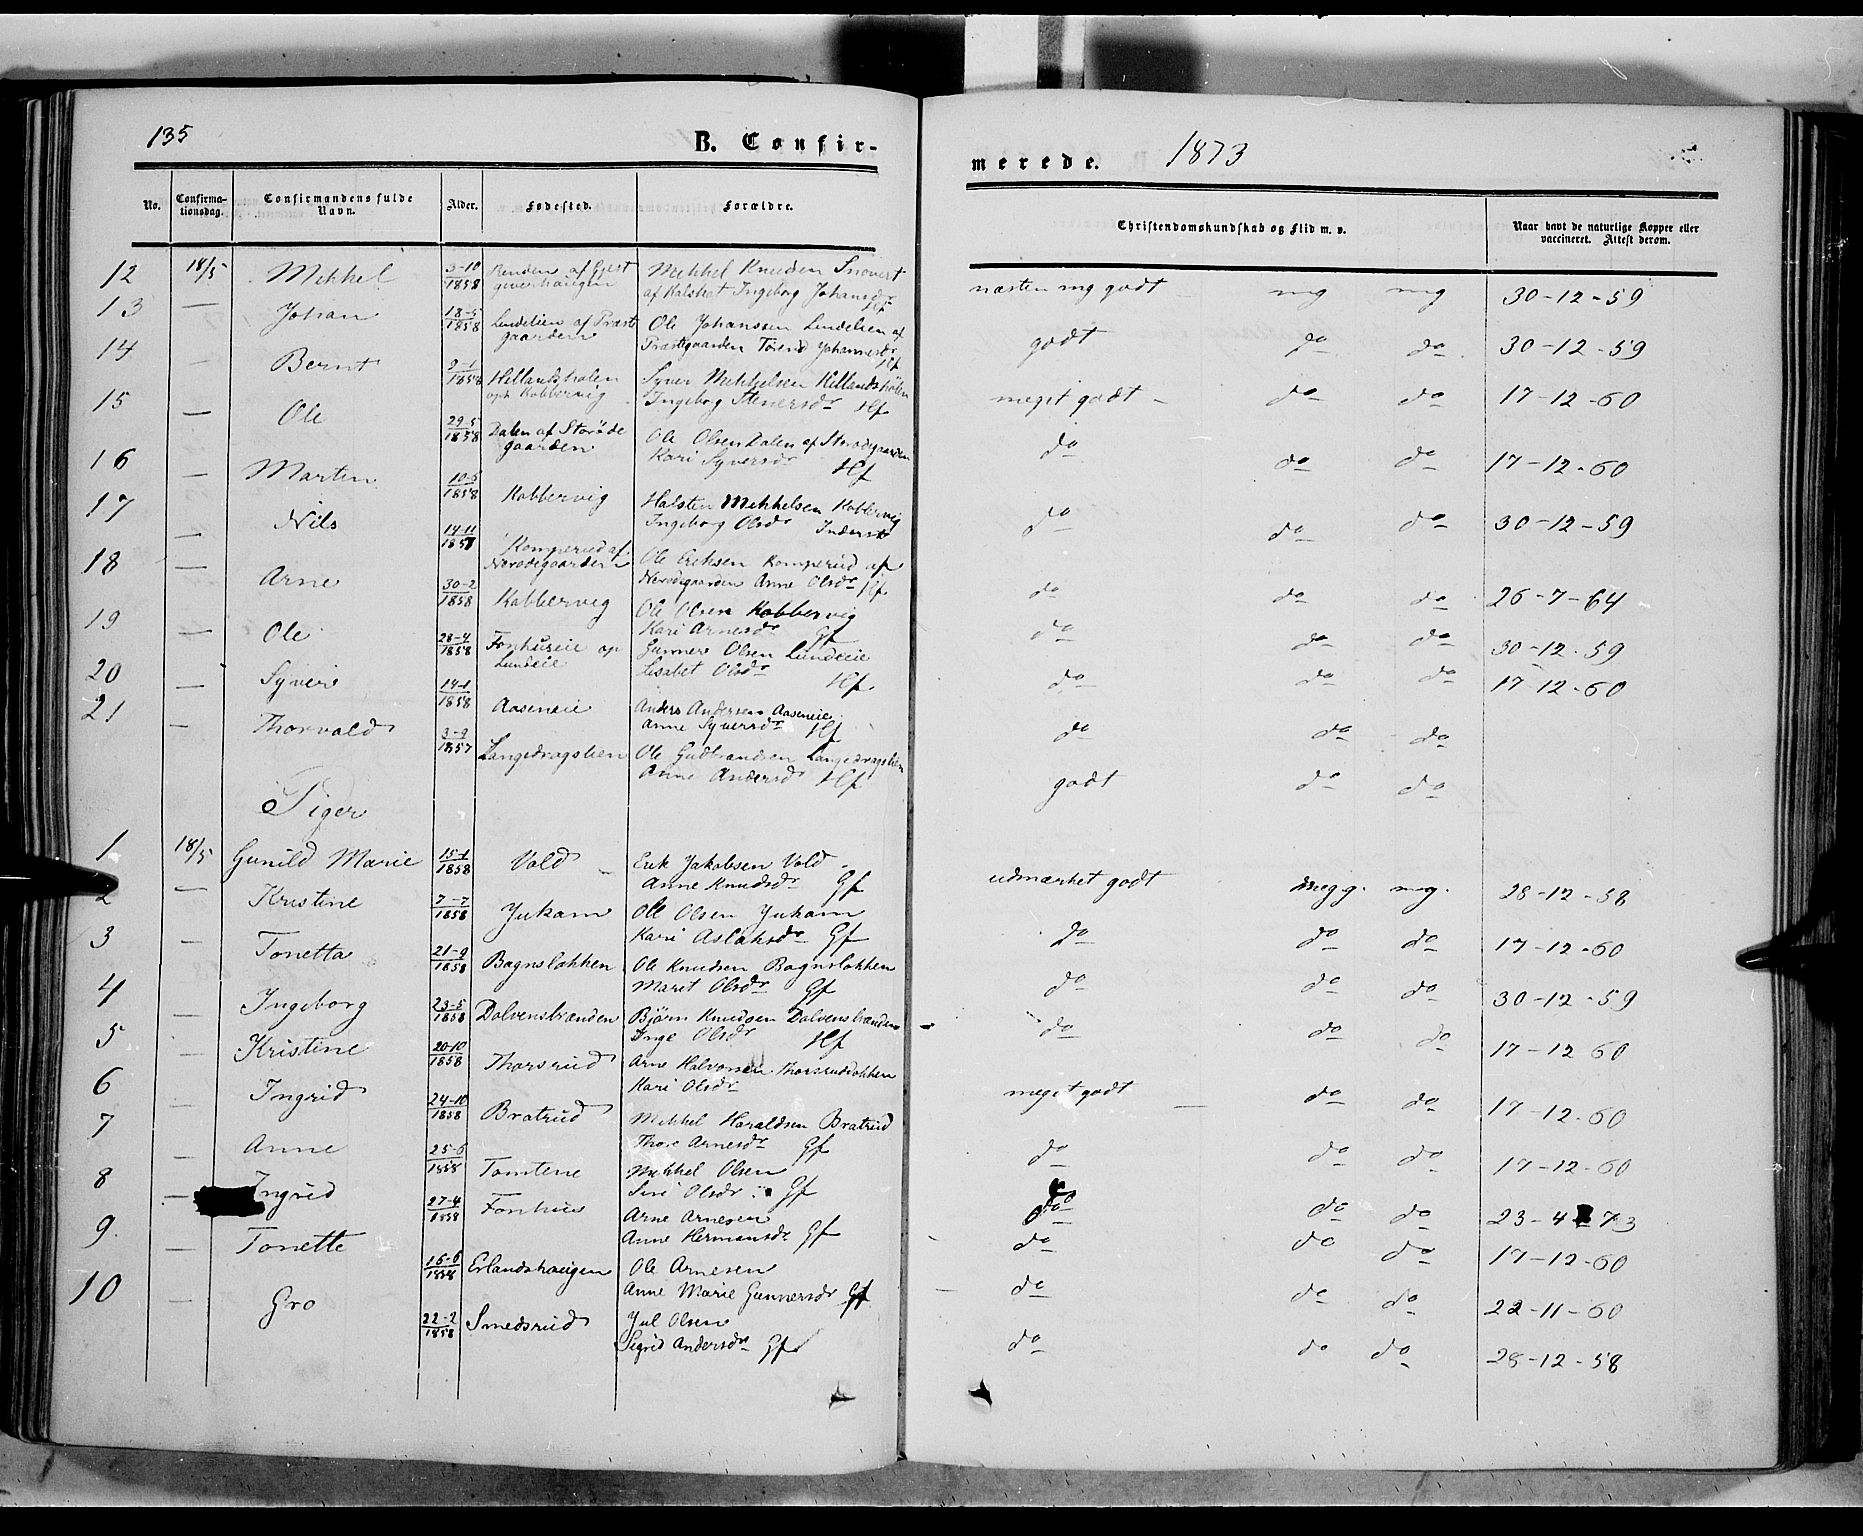 135
B. Confir-
merede. 1873
No.
Confirma-
tionsdag.
Confirmandens fulde
Navn.
Alder.
Fødested.
Forældre.
Christendomskundskab og Flid m. v.
Naar havt de naturlige Kopper eller
vaccineret. Attest derom.
12 18/5 Mikkel 3-10 1858 af Gjest
giverhaugen
Mikkel Knudsen
Ingeborg Johansdr Hf
næsten mg godt mg mg 30-12-59
13 — Johan 18-5 1858 Lundelien af Præste
gaarden
Ole Johanssen Lundelien af
Præstegaarden Johannesdr Hf
godt do do 30-12-59
14 — Bernt 9-1 1858 Hellandshølen
oph Kobbervig
Syver Mikkelsen Hellandshølen
Ingeborg Stenersdr Hf
meget godt - do do 17-12-60
15 — Ole 29-5 1858 Dalen af Storøde
gaarden
Ole Olsen Dalen af Storødegaarden
Kari Syversdr Hf
do do do 17-12-60
16 — Marten 10-5 1858 Kobbervig
Halsten Mikkelsen Kobbervig
Ingeborg Olsdr Inderst
do do do 30-12-59
17 — Nils 14-11 1857 Komperud af
Nerødegaarden
Ole Eriksen Komperud af
Nerødegaarden Anne Olsdr Hf
do do do 26-7-64
18 — Arne 30-2 1858 Kobbervig
Ole Olsen Kobbervig
Kari Arnesdr Gf
do do do 30-12-59
19 — Ole 28-4 1858 Fonhuseie op
Lundeie
Gunner Olsen Lundeie
Lisabet Olsdr Hf
do do do 17 12-60
20 — Syver 14-1 1858 Aaseneie
Anders Andersen Aaseneie
Anne Syversdr Hf
do do do
21 — Thorvald 3-9 1857 Langedragslien
Ole Gudbrandsen Langedragslien
Anne Andersdr Hf
godt do do
Piger
1 18/5 Gunild Marie 15-1 1858 Vold
Erik Jakobsen Vold
Anne Knudsdr Gf
udmærket godt meg g. mg. 28-12-58
2 — Kristine 7-7 1858 Jukam
Ole Olsen Jukam
Kari Aslaksdr Gf
do do do 17-12-60
3 — Tonetta 21-9 1858 Bagnsløkken
Ole Knudsen Bagnsløkken
Marit Olsdr Gf
do do do 30-12-59
4 — Ingeborg 23-5 1858 Dølvensbrænden
Bjørn Knudsen Dølvensbrænden
Inge Olsdr Hf
do do do 17-12 60
5 — Kristine 20-10 1858 Thorsrud
Arne Halvorsen Thorsrudløkken
Kari Olsdr
meget godt — do do 17-12-60
6 — Ingrid 24-10 1858 Bratrud
Mikkel Haraldsen Bratrud
Thore Arnesdr Gf
do do do 17-12-60
7 — Anne 25-6 1858 Tomtene
Mikkel Olsen
Siri Olsdr Gf
do do do 23-4-73
8 — Ingrid 27-4 1858 Fonhus
Arne Arnesen
Anne Hermansdr Gf
do do do 17-12-60
9. — Tonette 16-6 1858 Erlandshaugen
Ole Arnesen
Anne Marie Gunnersdr Gf
do do do 22-11-60
10 — Gro 22-2 1858 Smedsrud
Jul Olsen
Sigrid Andersdr Gf
do do do 28-12-58